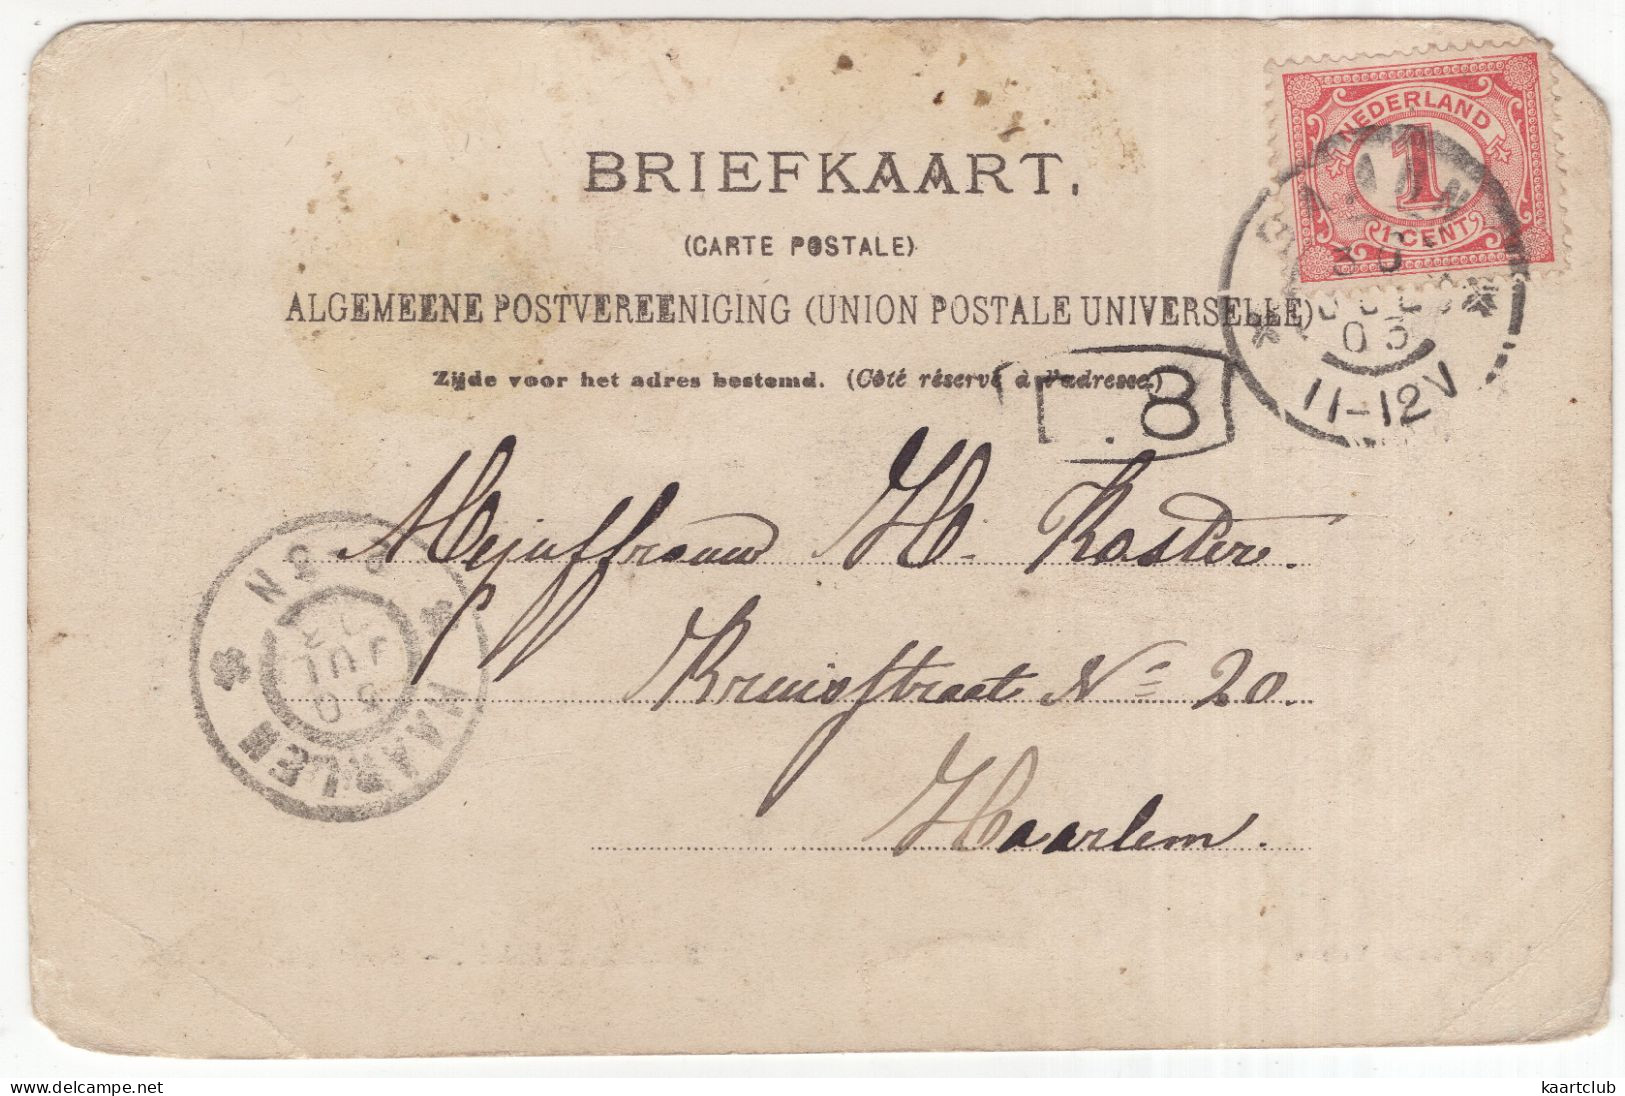 BRIEFKAART.
(CARTE POSTALE)
ALGEMEENE POSTVEREENIGING (UNION POSTALE UNIVERSELLE)
Zijde voor het adres bestemd. (Côté réservé à l'adresse)
NEDERLAND
1
1 CENT
BAARN
30
JUL
05
11-12V
8
Mejuffrouw H. Koster.
Kruisstraat No 20.
Haarlem.
HAARLEM
JUL
05
delcampe.net
kaartclub